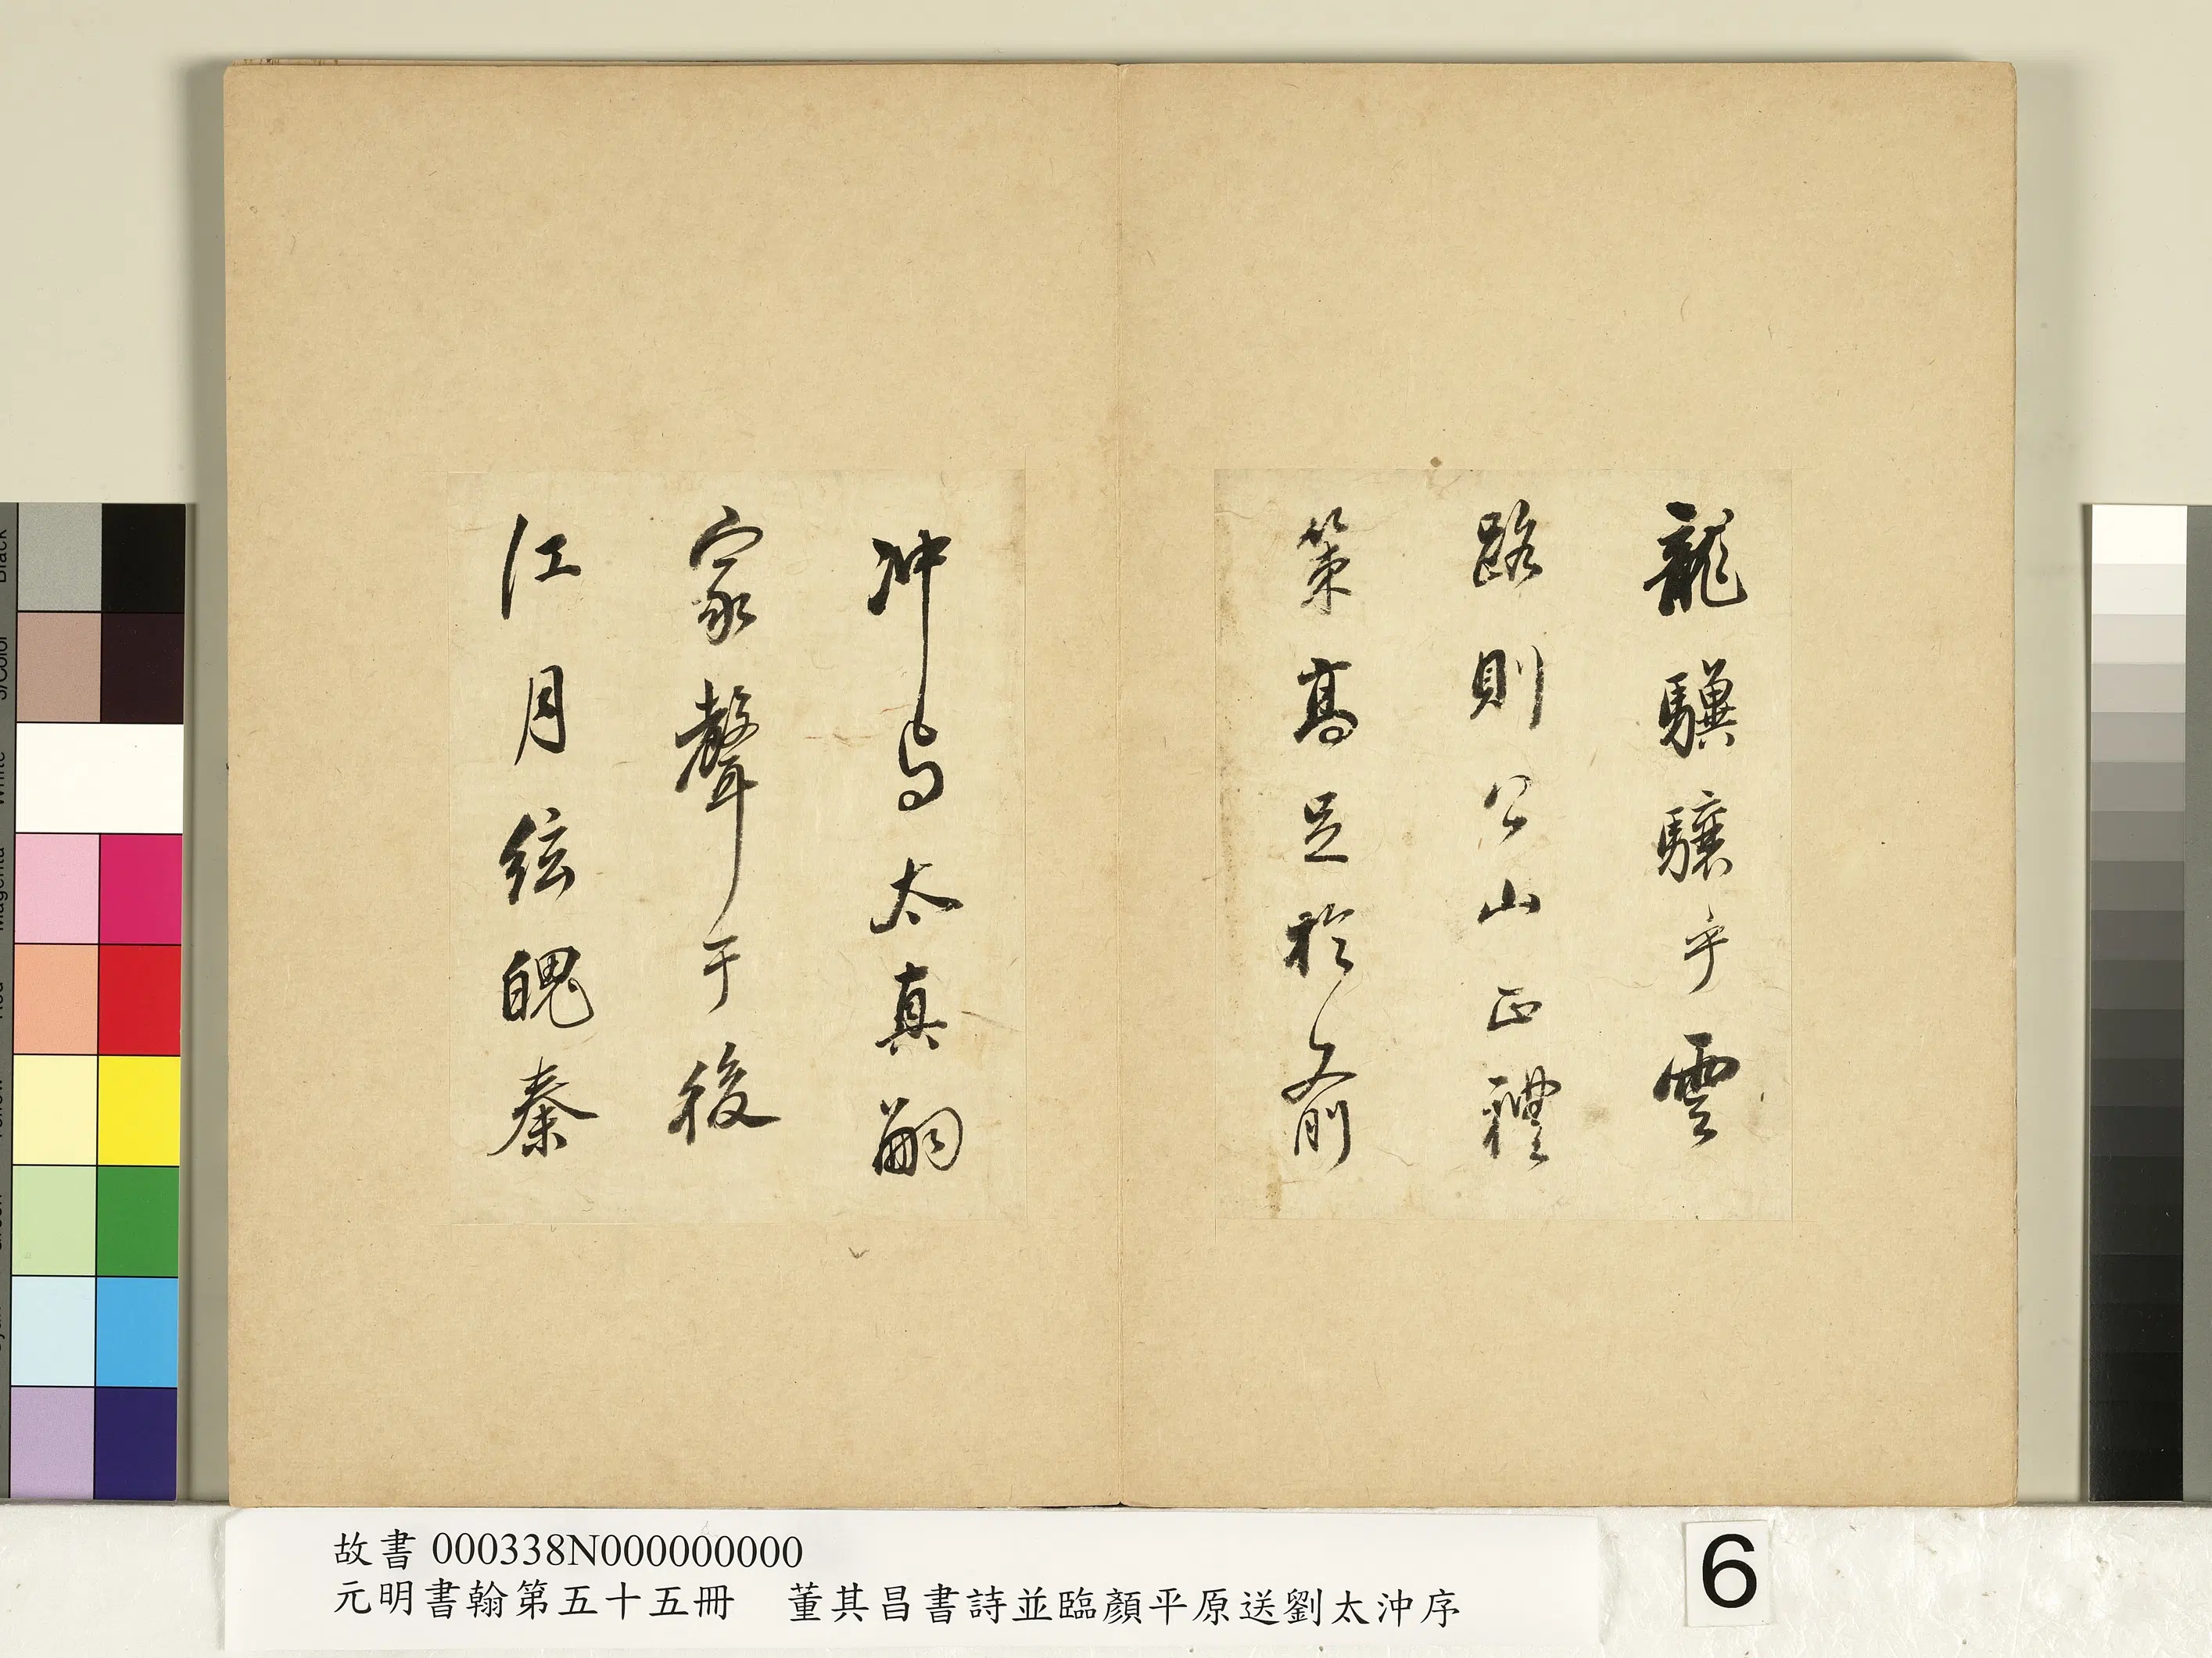 龍驥驤乎雲
路則公山正禮
策高足於前
沖与太真嗣
家聲于後
江月弦魄秦
故書 000338N000000000
元明書翰第五十五冊　董其昌書詩並臨顏平原送劉太沖序
6